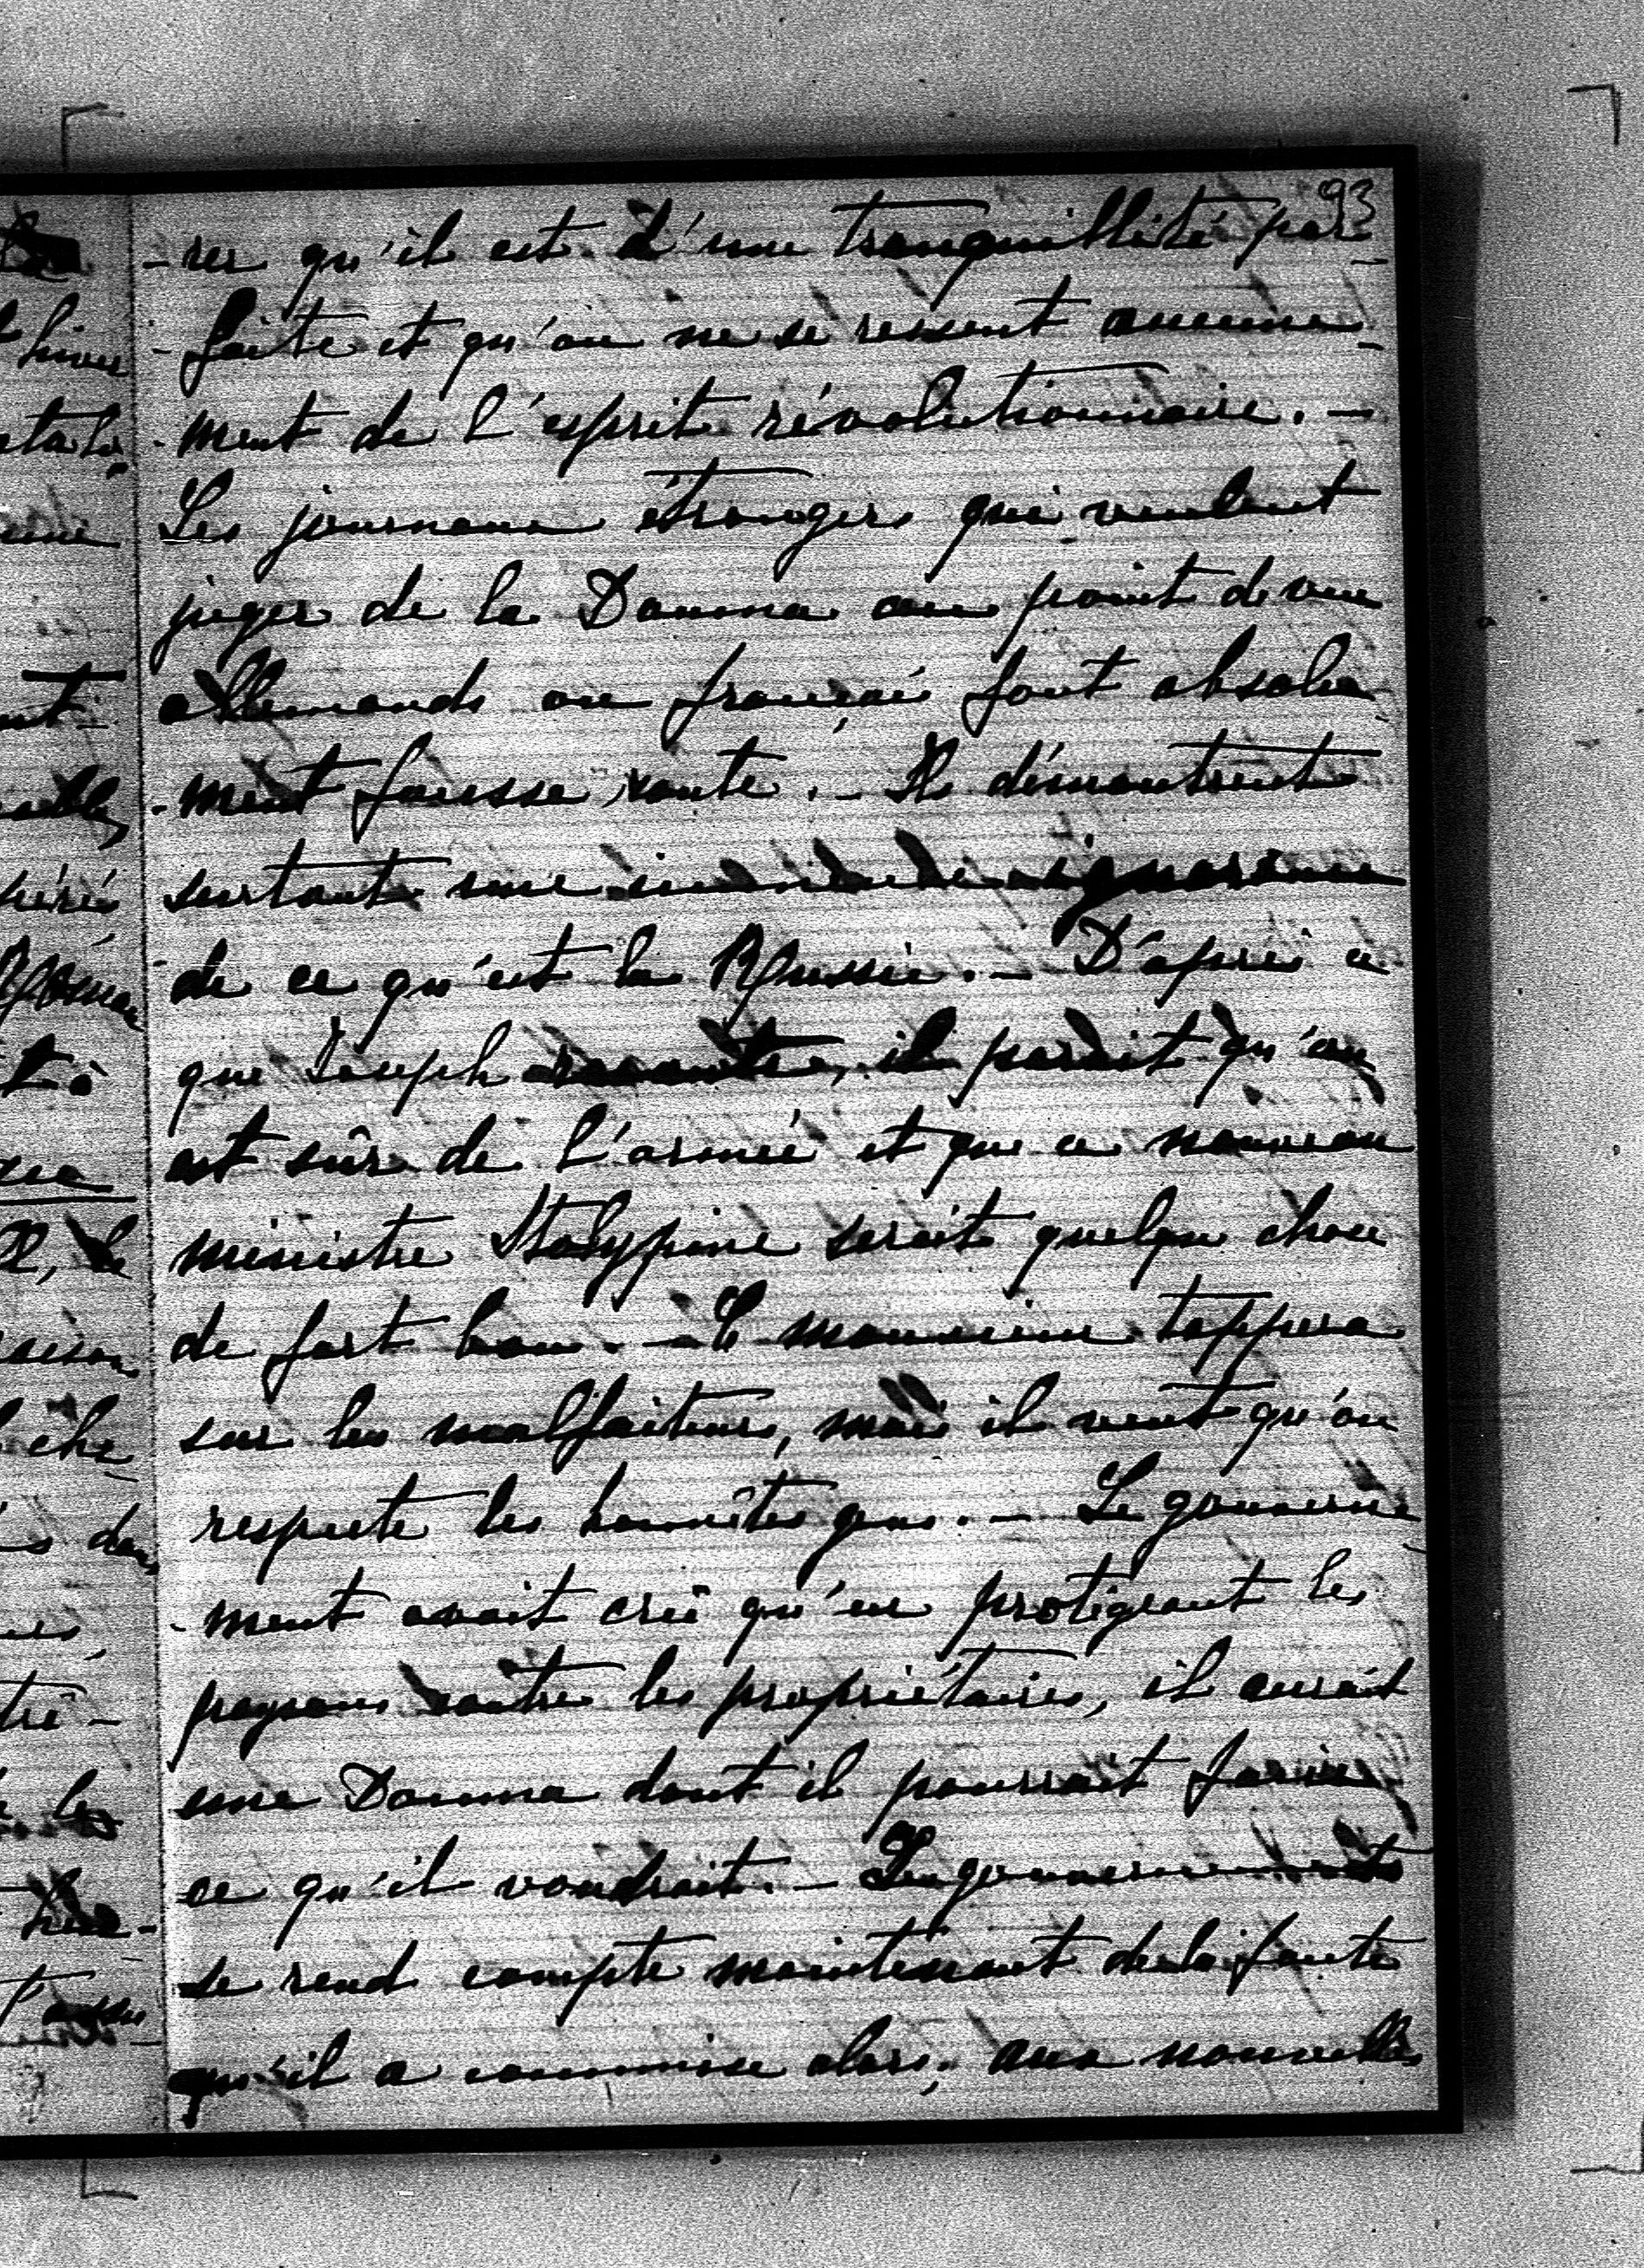 93
-rer qu'il est d'une tranquillité par-
-faite et qu'on ne se ressent aucune-
-ment de l'esprit révolutionnaire. -
Les journaux étrangers qui veulent
juger de la Douma au point de vue
allemands ou français font absolu-
-ment fausse route. - Ils démontrent
surtout une ignorance
de ce qu'est la Russie. - D'après ce
que Joseph raconte, il parait qu'on
est sûr de l'armée et que ce nouveau
ministre Stolypine serait quelque chose
de fort bon. - Ce monsieur tappera
sur les malfaiteurs, mais il veut qu'on
respecte les honnêtes gens. - Le gouverne-
-ment avait crû qu'en protégeant les
paysans contre les propriétaires, il aurait
une Douma dont il pourrait faire
ce qu'il voudrait. - Le gouvernement
se rend compte maintenant de la faute
qu'il a commise alors; aux nouvelles